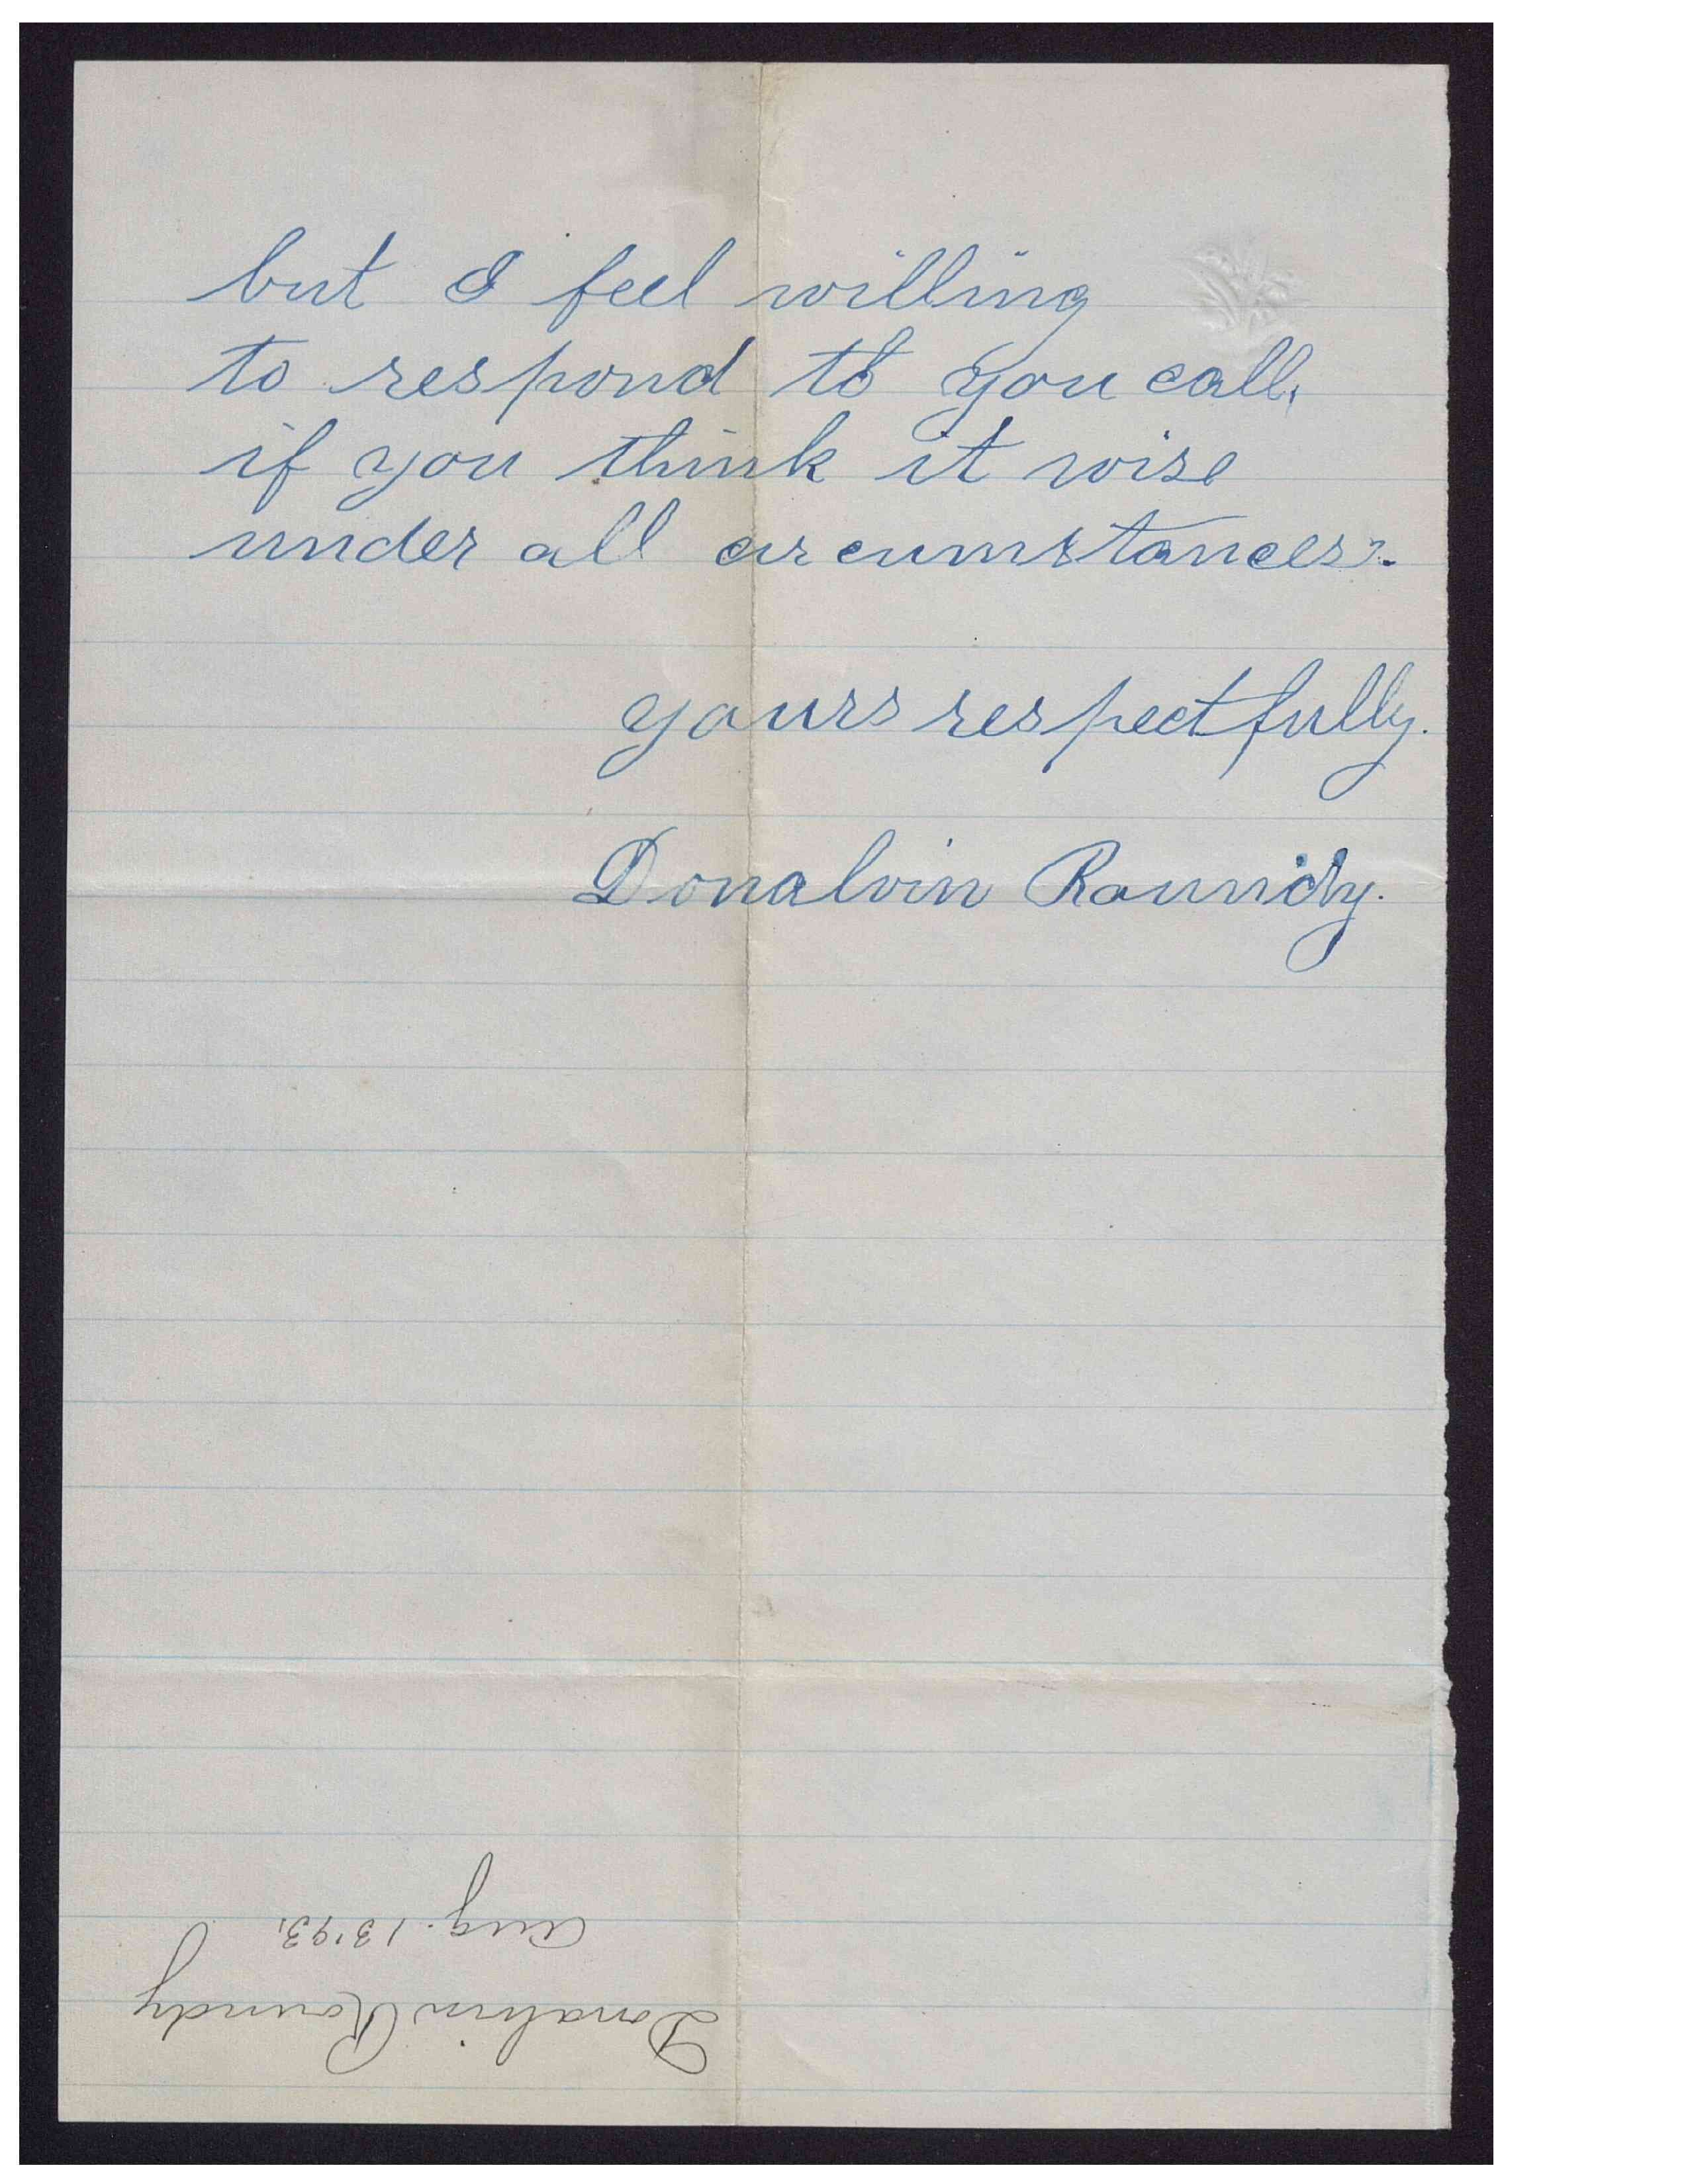 but I feel willing
to respond to you call,
if you think it wise
under all circumstances.
yours respectfully.
Donalvin Roundy.
Donalvin Roundy
Aug. 13 '93.